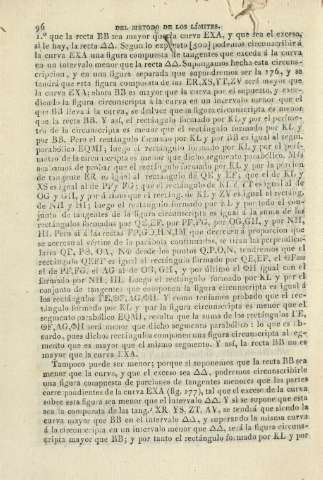 96 DEL METODO DE LOS LÍMITES.
1.º que la recta BB sea mayor que la curva EXA, y que sea el exceso,
si le hay, la recta ΔΔ. Segun lo expuesto podemos circunscribir á
la curva EXA una figura compuesta de tangentes que exceda á la curva
en un intervalo menor que la recta ΔΔ. Supongamos hecha esta circuns-
cripcion, y en una figura separada que supondremos ser la 276, y se
tendrá que esta figura compuesta de las ER, XS, YT, ZV será mayor que
la curva EXA; ahora BB es mayor que la curva por el supuesto, y exce-
diendo la figura circunscripta á la curva en un intervalo menor que el
que BB lleva á la curva, se deduce que la figura circunscripta es menor
que la recta BB. Y así, el rectángulo formado por KL y por el períme-
tro de la circunscripta es menor que el rectángulo formado por KL y
por BB. Pero el rectángulo formado por KL y por BB es igual al segm.
parabólico EQMI; luego el rectángulo formado por KL y por el perí-
metro de la circunscripta es menor que dicho segmento parabólico. Mas
acabamos de probar que el rectángulo formado por KL y por la porcion
de tangente ER es igual al rectángulo de QE y EF; que el de KL y
XS es igual al de PF y FG; que el rectángulo de KL y YT es igual al de
OG y GH, y por último que el rectáng. de KL y ZV es igual al rectáng.
de NH y HI; luego el rectángulo formado por KL y por todo el con-
junto de tangentes de la figura circunscripta es igual á la suma de los
rectángulos formados por QE,EF, por PF,FG, por OG,GH, y por NH,
HI. Pero si á las rectas
se acercan al vértice de la parábola continuados, se tiran las perpendicu-
lares desde los puntos Q,P,O,N, tendremos que el
rectángulo QEFΓ es igual al rectángulo formado por QE,EF, el
al de PF,FG, el AG al de OG, GH, y por último el ΦH igual con el
formado por NH, HI. Luego el rectángulo formado por KL y por el
conjunto de tangentes que componen la figura circunscripta es igual á
los rectángulos Y como teníamos probado que el rec-
tángulo formado por KL y por la figura circunscripta es menor que el
segmento parabólico EQMI, resulta que la suma de los rectángulos
será menor que dicho segmento parabólico: lo que es ab-
surdo, pues dichos rectángulos componen una figura circunscripta al seg-
mento que es mayor que el mismo segmento. Y así, la recta BB no es
mayor que la curva EXA.
Tampoco puede ser menor; porque si suponemos que la recta BB sea
menor que la curva, y que el exceso sea ΔΔ, podremos circunscribirle
una figura compuesta de porciones de tangentes menores que las partes
correspondientes de la curva EXA (fig. 277), tal que el exceso de la curva
sobre esta figura sea menor que el intervalo ΔΔ. Y si se supone que esta
sea la compuesta de las tang.s XR, YS, ZT, AV, se tendrá que siendo la
curva mayor que BB en el intervalo ΔΔ, y superando la misma curva
á la circunscripta en un intervalo menor que ΔΔ, será la figura circuns-
cripta mayor que BB; y por tanto el rectángulo formado por KL y por